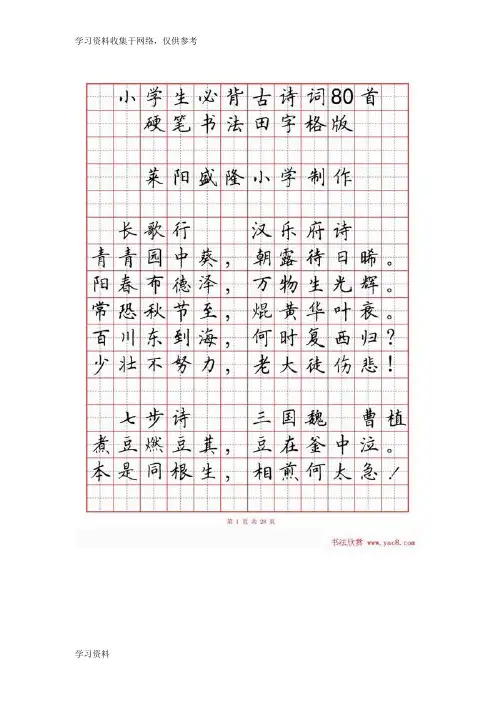 学习资料收集于网络，仅供参考
小学生必背古诗词80首
硬笔书法田字格版
莱阳盛隆小学制作
长歌行 汉乐府诗
青青园中葵，朝露待日晞。
阳春布德泽，万物生光辉。
常恐秋节至，焜黄华叶衰。
百川东到海，何时复西归？
少壮不努力，老大徒伤悲！
七步诗 三国魏 曹植
煮豆燃豆萁，豆在釜中泣。
本是同根生，相煎何太急！
第 1 页 共 28 页
书法欣赏 www.yac8.com
学习资料